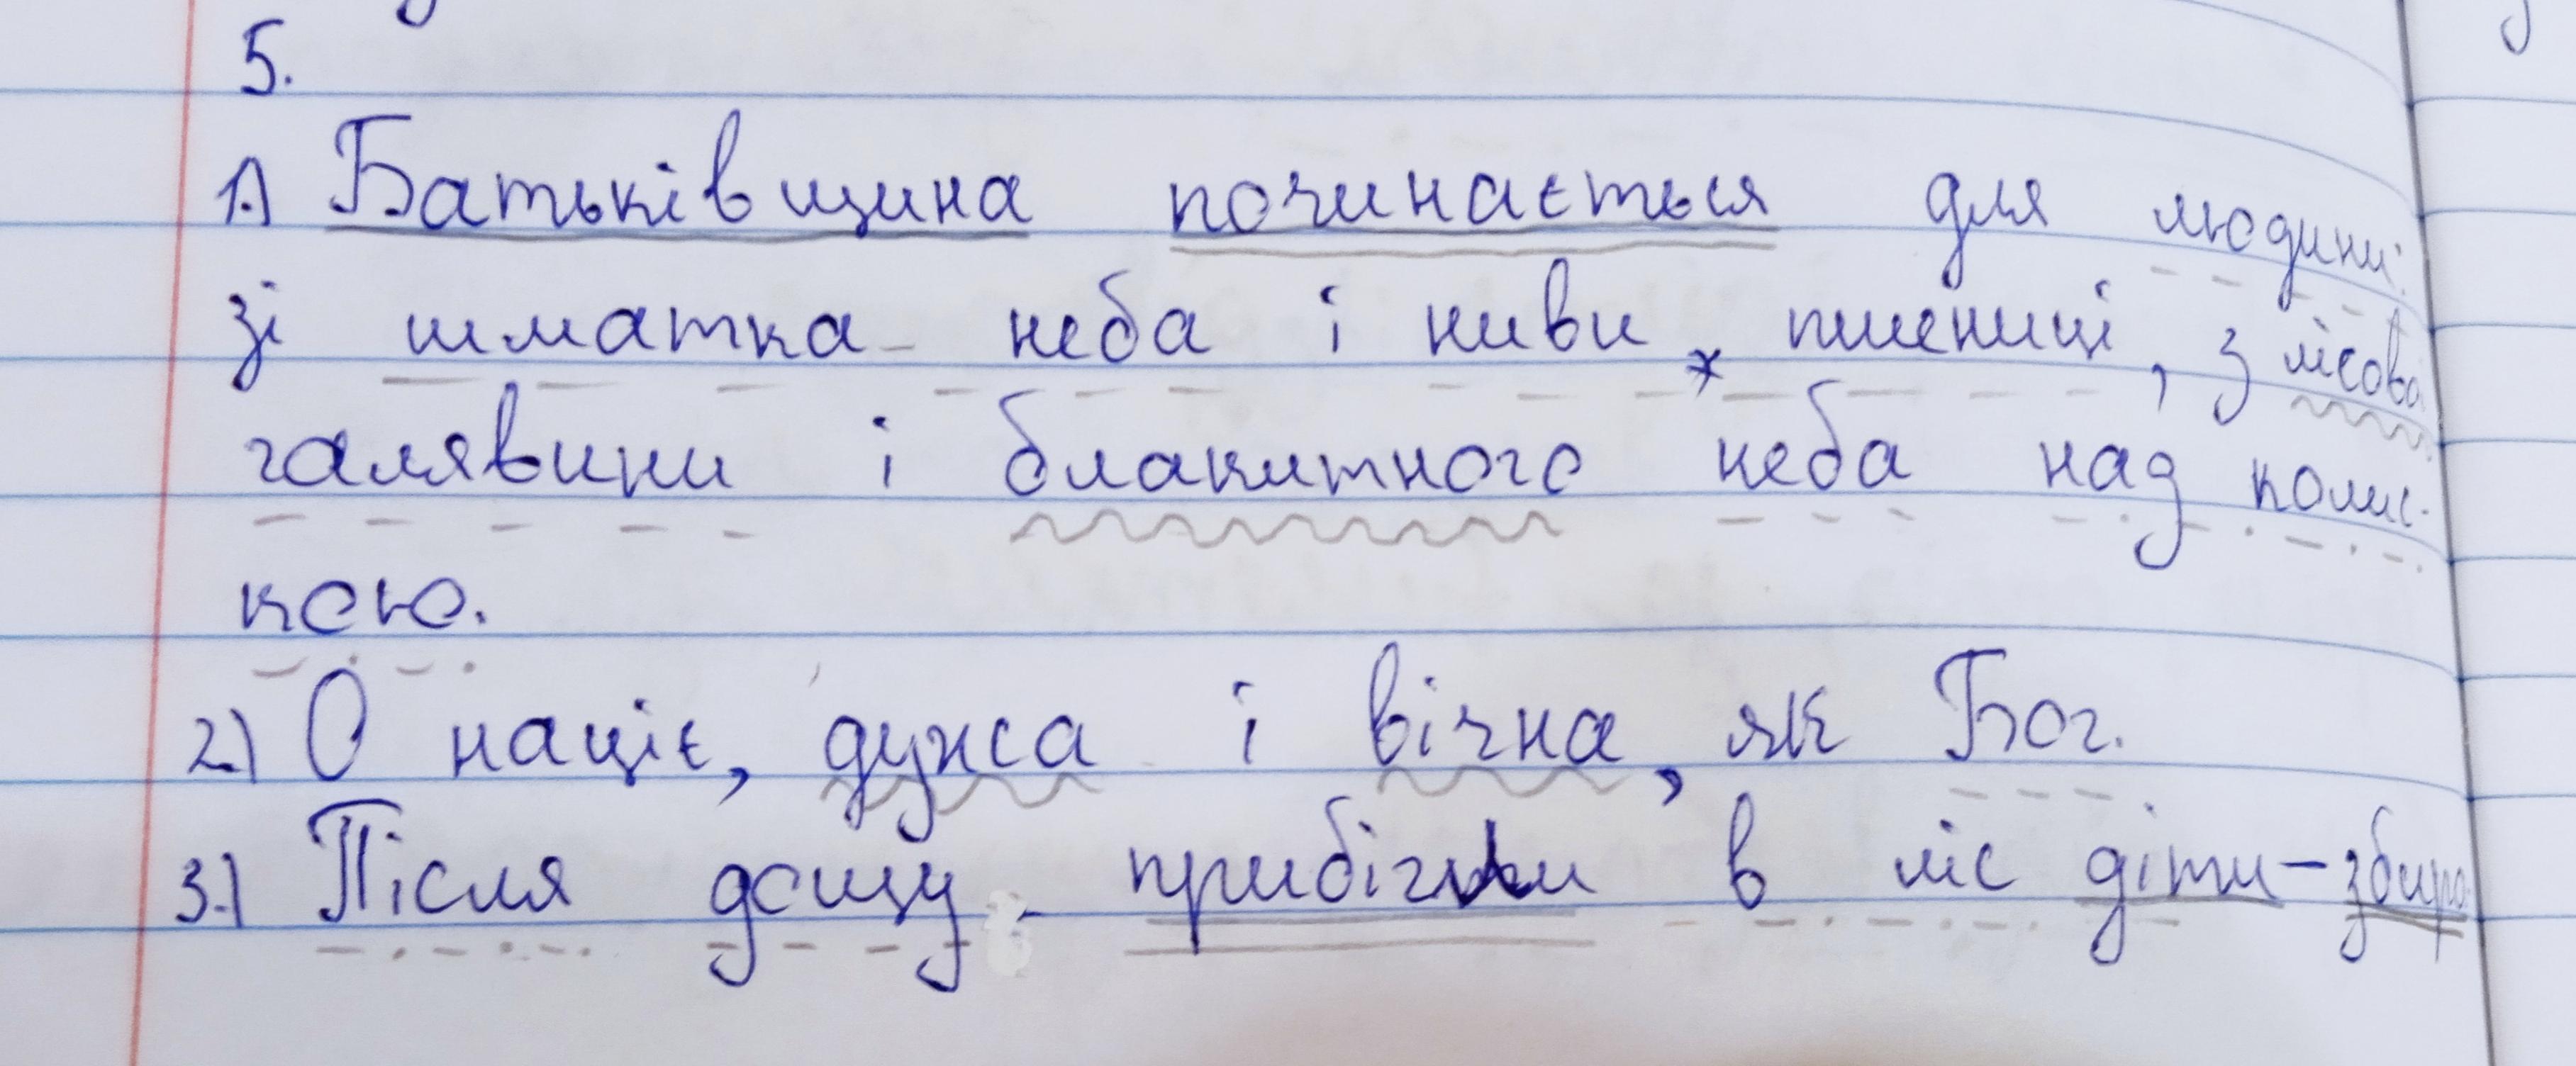 5.
1) Батьківщина починається для людини
зі шматка неба і ниви, пшениці, з лісово
галявини і блакитного неба над колис-
кою.
2) О націє, дужа і вічна, як Бог.
3) Після дощу прибігли в ліс діти – збира